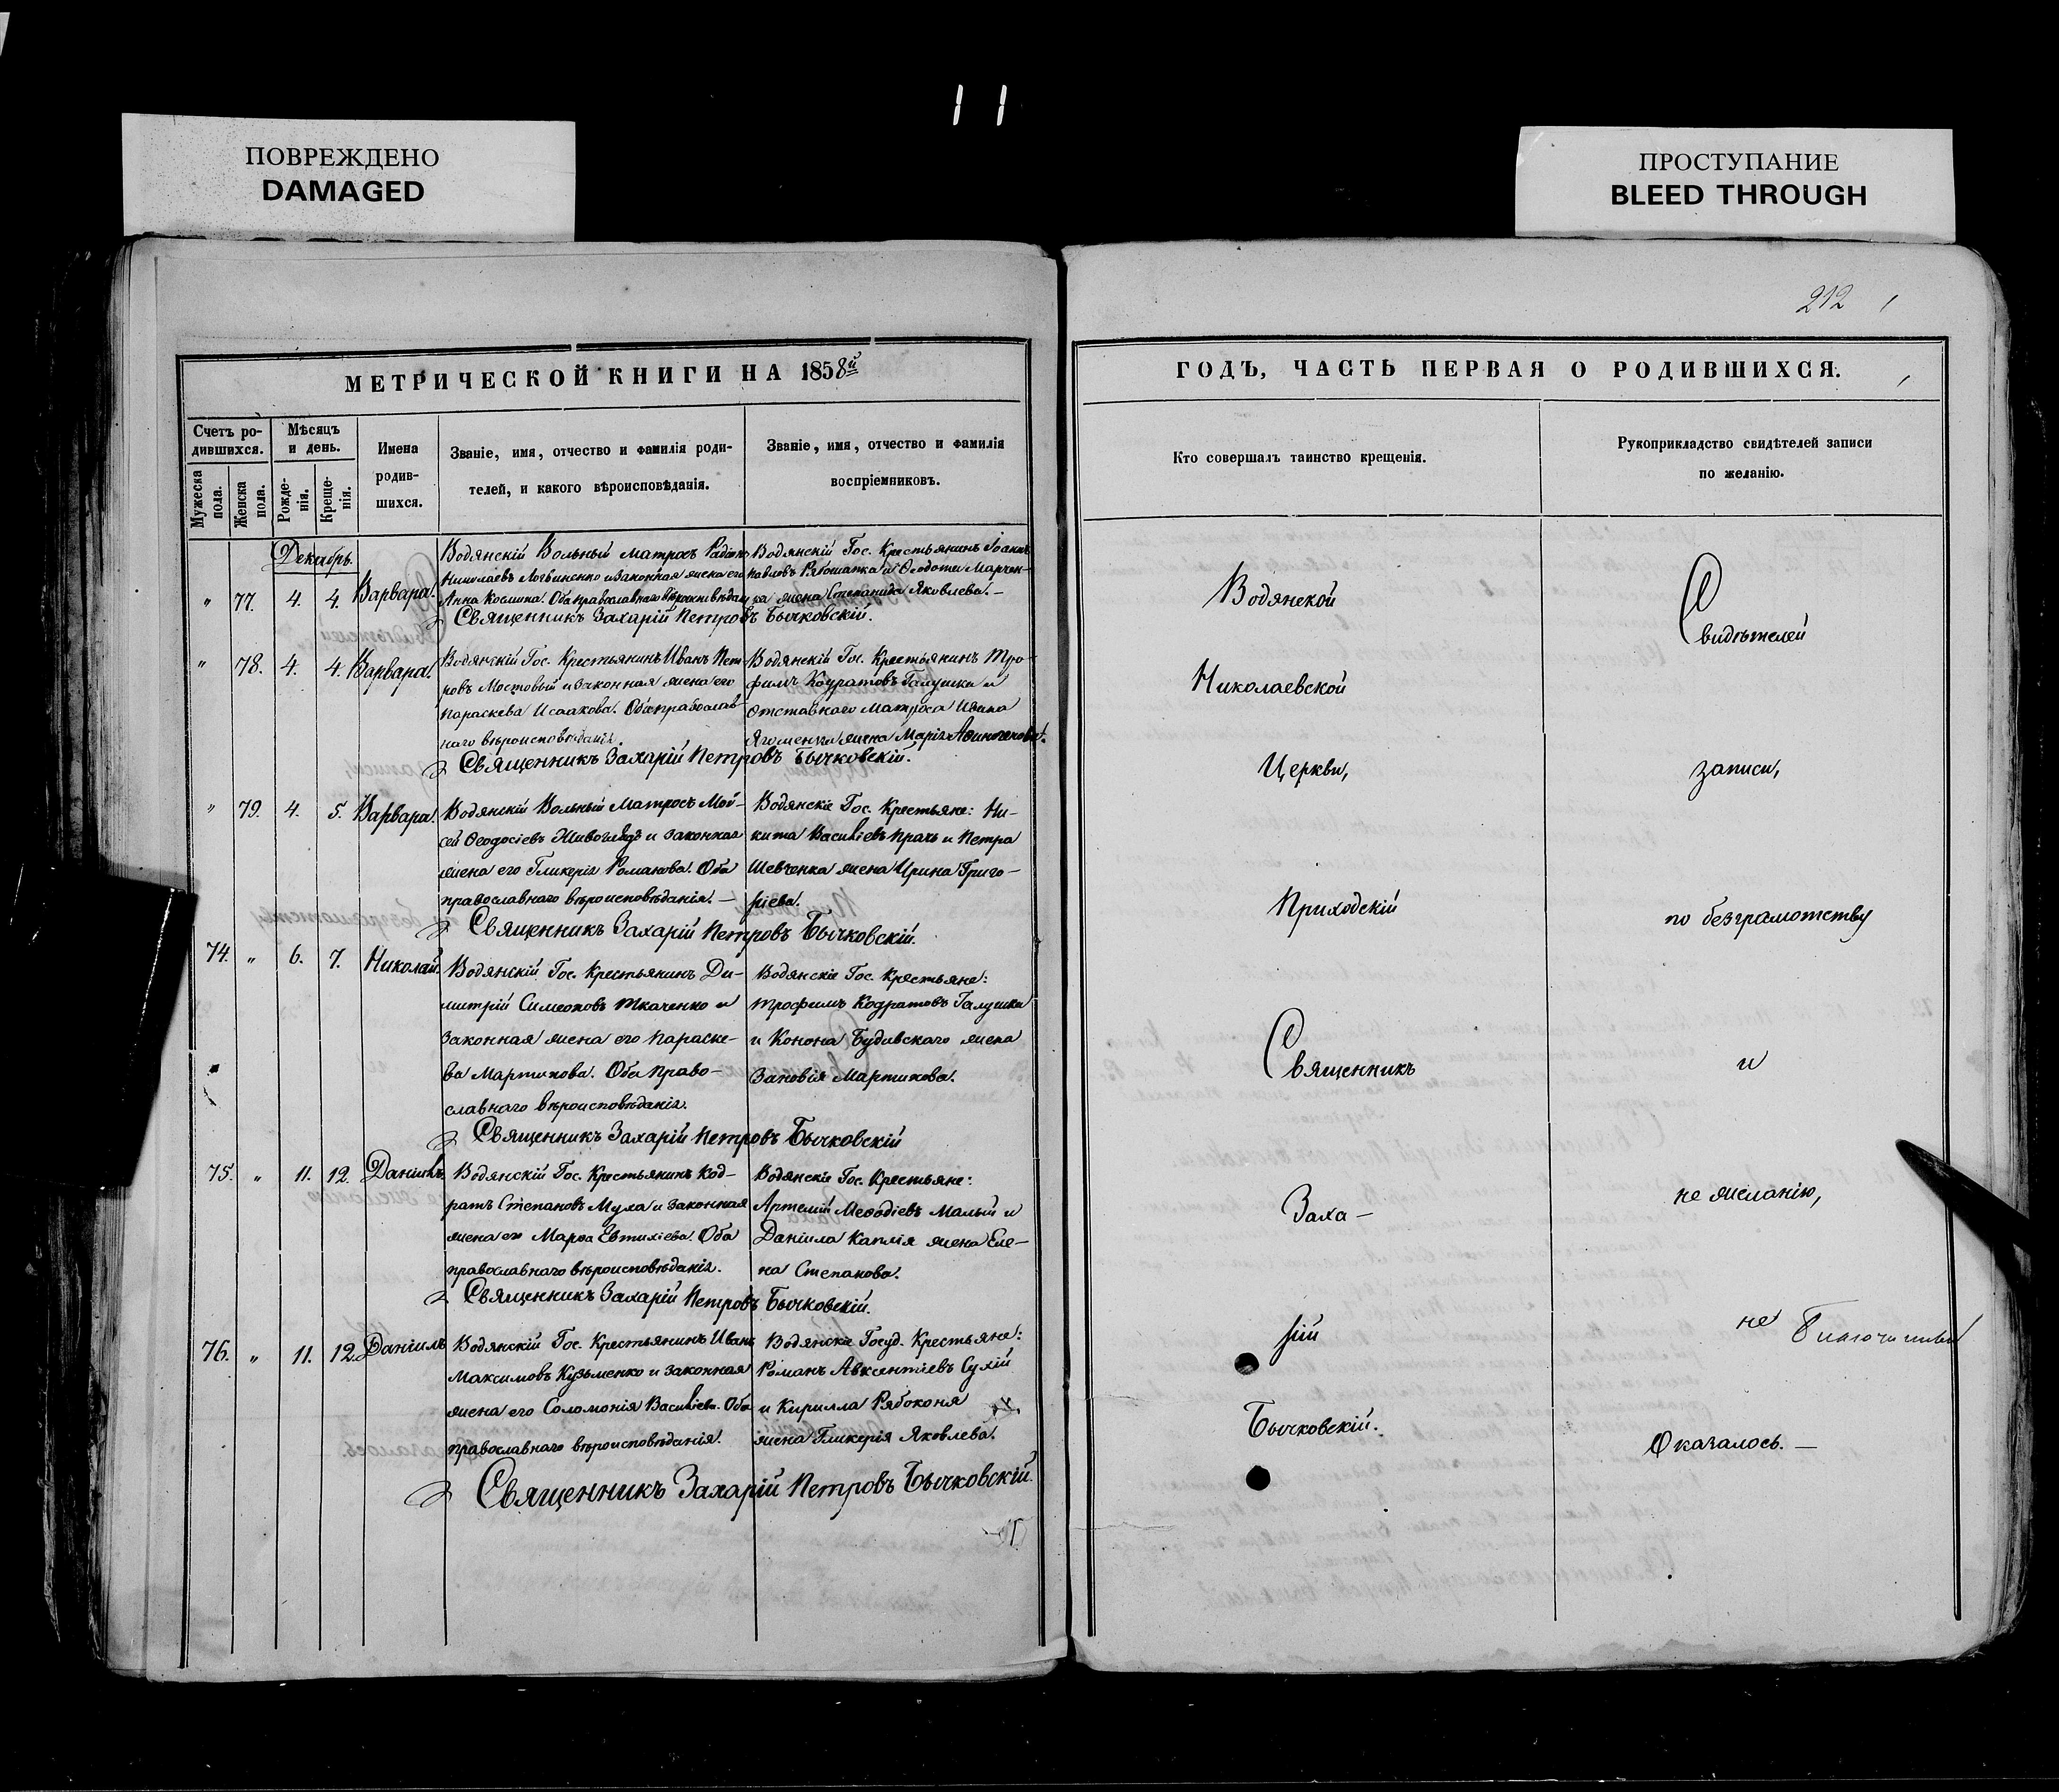 11
ПОВРЕЖДЕНО
DAMAGED
ПРОСТУПАНИЕ
BLEED THROUGH
212
МЕТРИЧЕСКОЙ КНИГИ НА 1858й
Счетъ родившихся.
Мужеска пола.
Женска пола.
Мѣсяцъ и день.
Рожденія.
Крещенія.
Имена родившихся.
Званіе, имя, отчество и фамилія роди-
телей, и какого вѣроисповѣданія.
Званіе, имя, отчество и фамилія
воспріемниковъ.
Декабрь.
" 77. 4. 4. Варвара.
Водянскій Вольный Матросъ
Николаевъ Логвиненко и законная жена его
Анна Космина. Оба православнаго
Водянскій Гос. Крестьянинъ Іоаннъ
Павловъ Рябошапка и Ѳеодота Марчен-
ка жена Степанида Яковлева. —
Священникъ Захарій Петровъ Бычковскій.
" 78. 4. 4. Варвара.
Водянскій Гос. Крестьянинъ Иванъ Пет-
ровъ Мостовый и законная жена его
Параскева Исаакова. Оба православ-
наго вѣроисповѣданія.
Водянскій Гос. Крестьянинъ Тро-
фимъ Кодратовъ Галушка и
Отставнаго Матроса Ивана
жена Марія
Священникъ Захарій Петровъ Бычковскій.
" 79. 4. 5. Варвара.
Водянскій Вольный Матросъ Мой-
сей Ѳеодосіевъ Живоглядъ и законная
жена его Гликерія Романова. Оба
православнаго вѣроисповѣданія. —
Водянскіе Гос. Крестьяне: Ни-
кита Василіевъ Прачъ и Петра
Шевченка жена Ирина Григо-
ріева.
Священникъ Захарій Петровъ Бычковскій.
74. " 6. 7. Николай.
Водянскій Гос. Крестьянинъ Ди-
митрій Симеоновъ Ткаченко и
законная жена его Параске-
ва Мартинова. Оба право-
славнаго вѣроисповѣданія.
Водянскіе Гос. Крестьяне:
Трофимъ Кодратовъ Галушка
и Конона Будивскаго жена
Зановія Мартинова.
Священникъ Захарій Петровъ Бычковскій
75. " 11. 12. Даніилъ.
Водянскій Гос. Крестьянинъ Код-
ратъ Степановъ Муха и законная
жена его Марѳа Евтихіева. Оба
православнаго вѣроисповѣданія.
Водянскіе Гос. Крестьяне:
Артемій Меѳодіевъ Малый и
Даніила Каплія жена Еле-
на Степанова.
Священникъ Захарій Петровъ Бычковскій.
76. " 11. 12. Даніилъ
Водянскій Гос. Крестьянинъ Иванъ
Максимовъ Кузьменко и законная
жена его Соломонія Василіева. Оба
православнаго вѣроисповѣданія.
Водянскіе Госуд. Крестьяне:
Романъ Авксентіевъ Сухій
и Кирилла Рябоконя
жена Гликерія Яковлева.
Священникъ Захарій Петровъ Бычковскій.
ГОДЪ, ЧАСТЬ ПЕРВАЯ О РОДИВШИХСЯ.
Кто совершалъ таинство крещенія.
Рукоприкладство свидѣтелей записи
по желанію.
Водянской
Николаевской
Церкви,
Приходскій
Священникъ
Заха-
рій
Бычковскій.
Свидѣтелей
записи,
по безграмотству
и
не желанію,
не
Оказалось. —